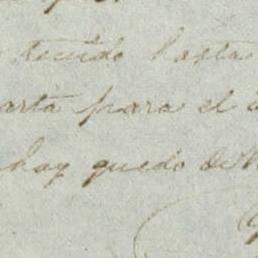 tenido hasta
carta para el
hay quedo de V